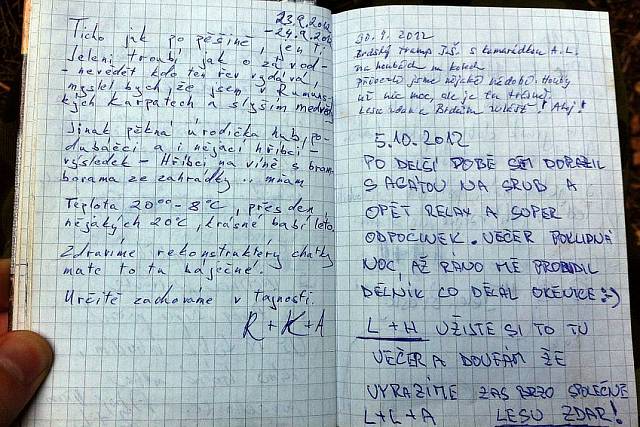 23.9.2012
-24.9.2012
Ticho jak po pěšině, jen ti
jeleni troubí jak o závod -
- nevědět kdo ten řev vydává,
myslel bych, že jsem v Rumuns-
kých Karpatech a slyším medvěd
Jinak pěkná úrodička hub, po-
dubáčci a i nějací hřibci -
výsledek - Hřibci na víně s bram-
borama ze zahrádky .. mňam
Teplota 20°° - 8°C, přes den
nějakých 20°C, krásné babí léto.
Zdravíme rekonstruktéry chatky
máte to tu báječné.
Určitě zachováme v tajnosti.
R+K+A
30.9.2012
Brdský Tramp s kamarádkou A.L.
na houbách
přivezli jsme nějaké nádobí. Houby
už nic moc, ale je tu krásně.
Lesu zdar a Brdům zvlášť! Ahoj!
5.10.2012
PO DELŠÍ DOBĚ SEM DORAZIL
S AGÁTOU NA SRUB A
OPĚT RELAX A SUPER
ODPOČINEK. VEČER POKLIDNÁ
NOC, AŽ RÁNO MĚ PROBUDIL
DĚLNÍK CO DĚLAL OKENICE :-)
L + H UŽIJTE SI TO TU
VEČER A DOUFÁM ŽE
VYRAZÍME ZAS BRZO SPOLEČNĚ
L+L+A LESU ZDAR!